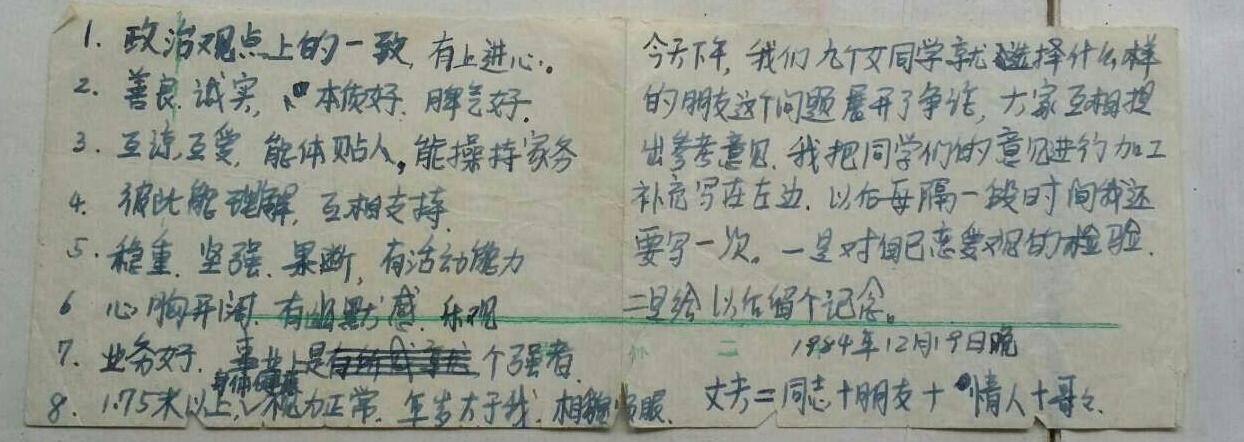 1. 政治观点上的一致,有上进心。
2. 善良.诚实, 本质好.脾气好.
3. 互谅,互爱,能体贴人,能操持家务
4. 彼此能理解,互相支持.
5. 稳重.坚强.果断,有活动能力
6 心胸开阔.有幽默感.乐观
7. 业务好.事业上是个强者.
身体健康
8. 1.75米以上,√视力正常.年岁大于我.相貌 服.
今天下午,我们九个女同学就选择什么样
的朋友这个问题展开了争论,大家互相提
出参考意见.我把同学们的意见进行加工
补充写在左边.以后每隔一段时间我还
要写一次。一是对自己恋爱观的检验.
二是给以后留个记念。
1984年12月19日晚
丈夫=同志+朋友+情人+哥々.